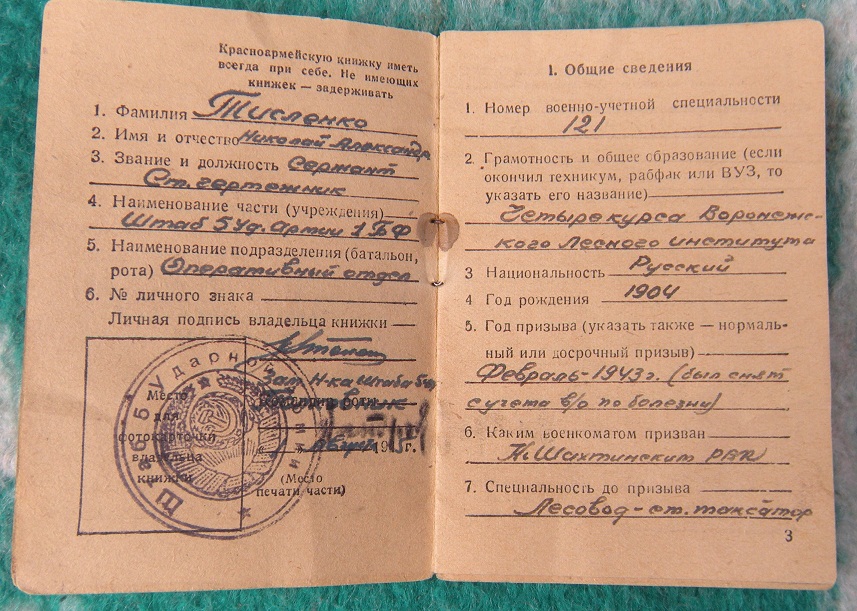 Красноармейскую книжку иметь
всегда при себе. Не имеющих
книжек — задерживать
1. Фамилия Тисленко
2. Имя и отчество Николай Александр
3. Звание и должность Сержант
Ст. чертежник
4. Наименование части (учреждения)
Штаб 5 Уд. Армии 1 БФ
5. Наименование подразделения (батальон,
рота) Оперативный отдел
6. № личного знака
Личная подпись владельца книжки
Зам. Н-ка Штаба 5 Уд
Полковник
Место
для
фотокарточки
владельца
книжки
194 г.
(Место
печати части)
Штаб 5 Ударной Армии
1. Общие сведения
1. Номер военно-учетной специальности
121
2. Грамотность и общее образование (если
окончил техникум, рабфак или ВУЗ, то
указать его название)
Четыре курса Воронежс-
кого Лесного института
3 Национальность Русский
4 Год рождения 1904
5. Год призыва (указать также — нормаль-
ный или досрочный призыв)
Февраль-1943 г. (был снят
с учета в/о по болезни)
6. Каким военкоматом призван
Шахтинским РВК
7. Специальность до призыва
Лесовод-ст. таксатор
3